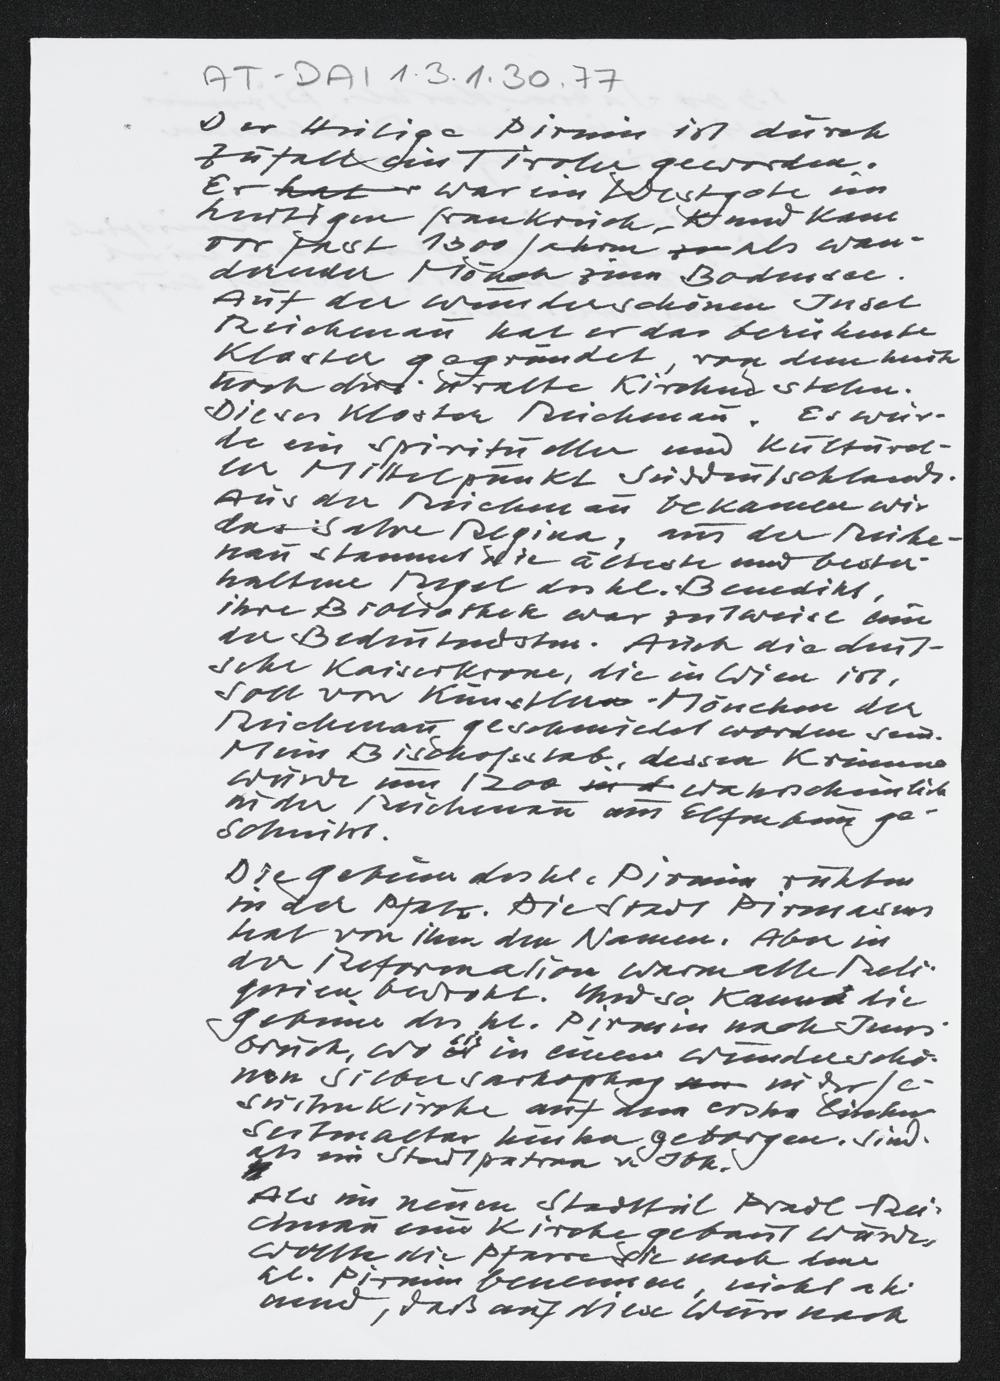 AT-DAI 1.3.1.30.77
Der Heilige Pirmin ist durch
Zufall ein Tiroler geworden.
Er hat war ein Westgote im
heutigen Frankreich, und kam
vor fast 1300 Jahren als wan-
dernder Mönch zum Bodensee.
Auf der wunderschönen Insel
Reichenau hat er das berühmte
Kloster gegründet, von dem heute
noch drei uralte Kirchen stehen.
Dieses Kloster Reichenau. Es wur-
de ein spiritueller und kulturel-
ler Mittelpunkt Süddeutschlands.
Aus der Reichenau bekamen wir
das Salve Regina, aus der Reiche-
nau stammt die älteste und bester-
haltene Regel des hl. Benedikt,
ihre Bibliothek war zeitweise eine
der Bedeutendsten. Auch die deut-
sche Kaiserkrone, die in Wien ist,
soll von Künstler-Mönchen der
Reichenau geschmiedet worden sein.
Mein Bischofsstab, dessen Krümme
wurde um 1200 wahrscheinlich
in der Reichenau aus Elfenbein ge-
schnitzt.
Die Gebeine des hl. Pirmin ruhten
in der Pfalz. Die Stadt Pirmasens
hat von ihm den Namen. Aber in
der Reformation waren alle Reli-
quien bedroht. Und so kamen die
Gebeine des hl. Pirmin nach Inns-
bruck, wo sie in einem wunderschö-
nen Silbersarkophag in der Je-
suitenkirche auf dem ersten linken
Seitenaltar hinten geborgen sind.
als ein Stadtpatron v. Ibk.
Als im neuen Stadtteil Pradl-Rei-
chenau eine Kirche gebaut wurde,
wollte die Pfarre sie nach dem
hl. Pirmin benennen, nicht ah-
nend, daß auf diese Weise nach